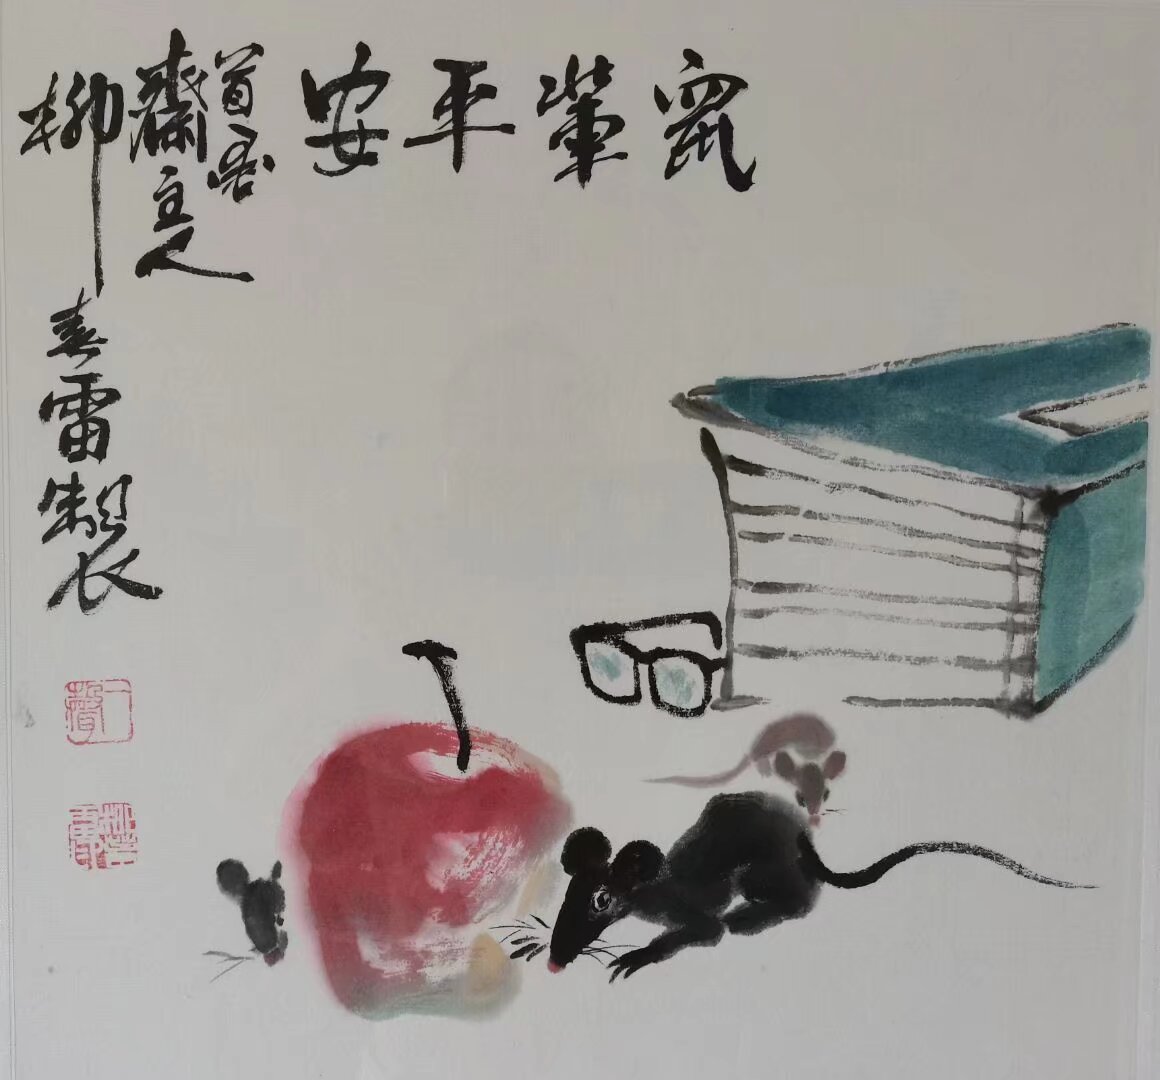 鼠輩平安
吾
齋主人
柳春雷製